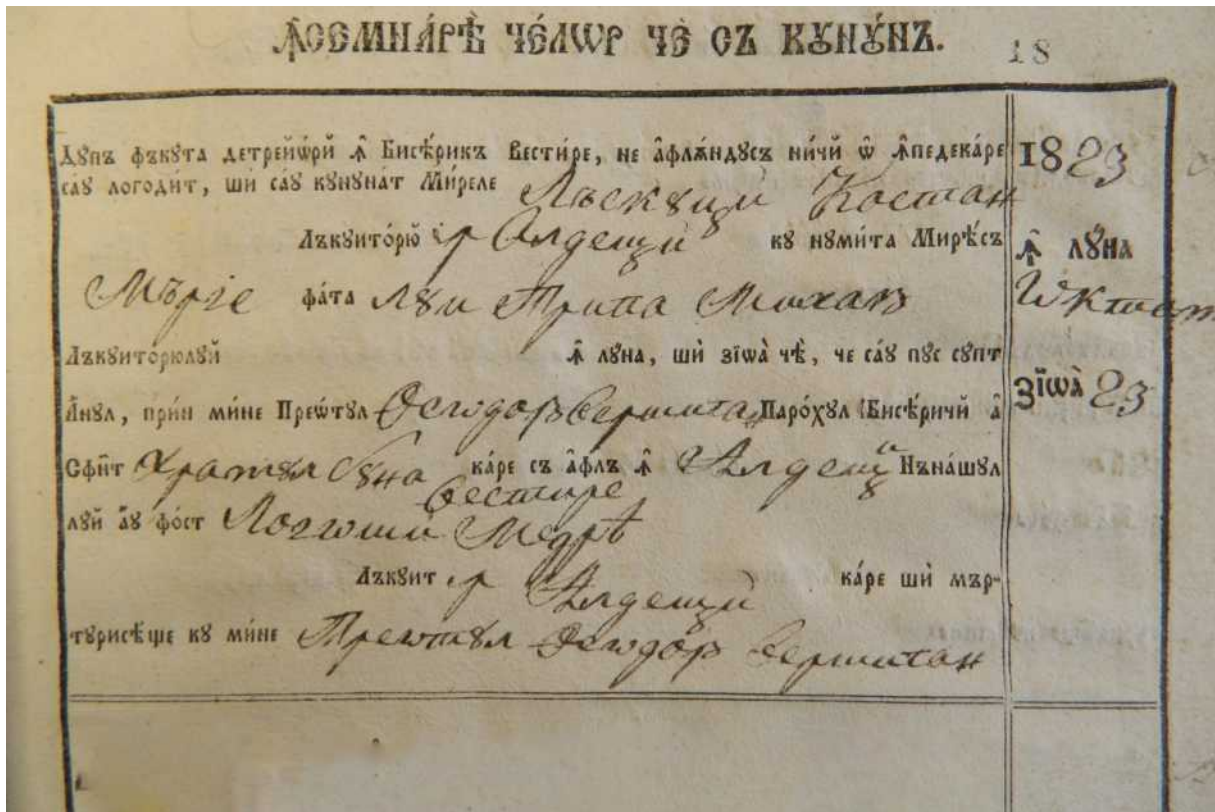 Ꙟсемна́рѣ че́лѡр чѐ съ кꙋнꙋ́нъ.
18
Дꙋпъ фъкꙋта детрейѡ́рй ꙟ̂ Бисѣ́рикъ Вести́ре, не а̂флѫндꙋсъ ни́чй ѡ҆̂ ꙟ̂педека́ре
са́ꙋ логоди́т, шѝ са́ꙋ кꙋнꙋна́т Ми́реле Лъскꙋцй Костан
Лъкꙋито́рю̆ ꙟ Алдещй кꙋ нꙋми́та Мирѣ́съ
Мъріе фа́та лꙋи Трипа Михаю
Лъкꙋиторюлꙋй ꙟ̂ лꙋна, шѝ зїѡа̀ чѐ, че са́ꙋ пꙋс сꙋпт
А́нꙋл, при́н ми́не Прео́тꙋл Ѳеѡдор Вершитан Паро́хꙋл Бисѣ́ричй а̂
Сфи́нт Храмꙋл бꙋна вестире ка́ре съ а̂флъ ꙟ̂ Алдещй Нъна́шꙋл
лꙋй а́ꙋ фо́ст Логѡши Медрѣ
Лъкꙋит ꙟ Алдещй ка́ре шѝ мър-
тꙋрисѣ́ще кꙋ ми́не Преѡтꙋл Ѳеѡдор Вершитан
1823
ꙟ̂ лꙋ́на
Ѡктом
Зїѡа̀ 23